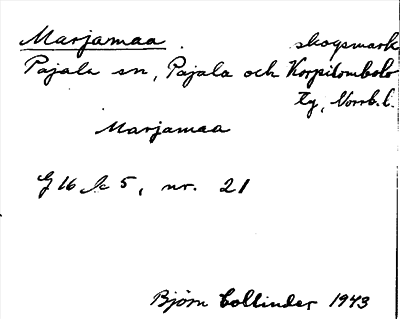 Marjamaa . skogsmark
Pajala sn, Pajala och Korpilombolo
tg, Norrb. l.
Marjamaa
G 16 k 5, nr. 21
Björn Collinder 1943